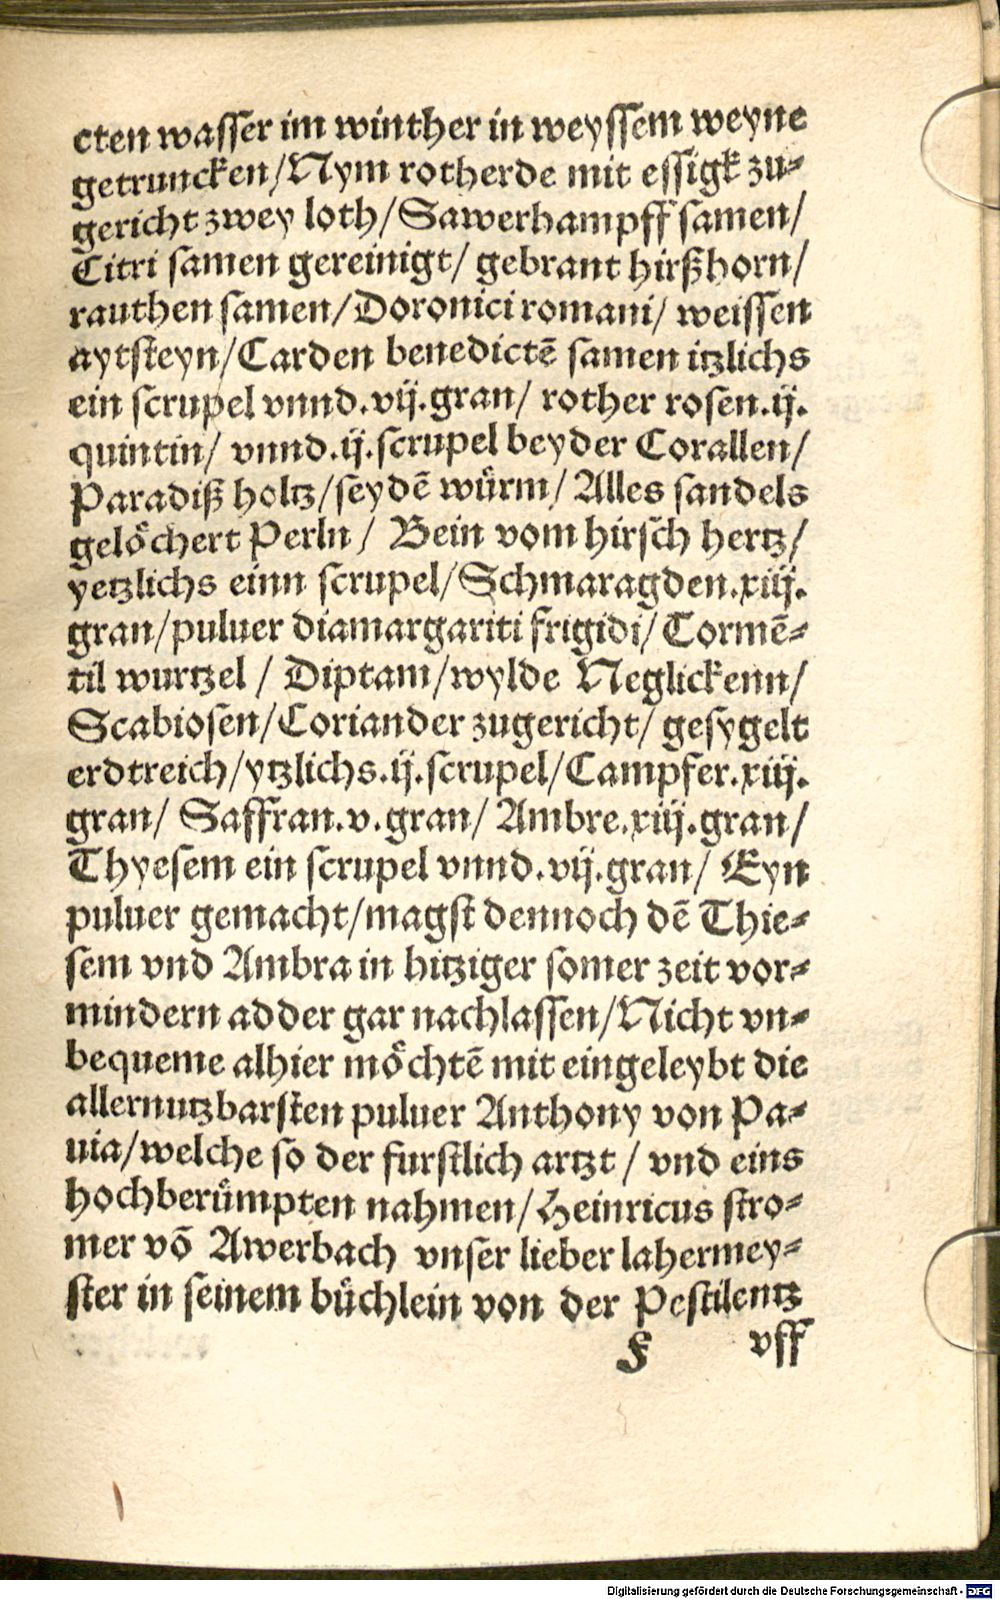 cten wasser im winther in weyssem weyne
getruncken/Nym rotherde mit essigk zu-
gericht zwey loth/Sawerhampff samen/
Citri samen gereinigt/ gebrant hirßhorn/
rauthen samen/Doronici romani/ weissen
aytsteyn/Carden benedictē samen itzlichs
ein scrupel vnnd.vij.gran/ rother rosen.ij.
quintin/ vnnd.ij.scrupel beyder Corallen/
Paradiß holtz/seydē wuͤrm/ Alles sandels
geloͤchert Perln / Bein vom hirsch hertz/
yetzlichs einn scrupel/Schmaragden.xiij.
gran/puluer diamargariti frigidi/ Tormē-
til wurtzel / Diptam/wylde Neglickenn/
Scabiosen/Coriander zugericht/ gesygelt
erdtreich/ytzlichs.ij.scrupel/Campfer.xiij.
gran/ Saffran.v.gran/ Ambre.xiij.gran/
Thyesem ein scrupel vnnd.vij.gran/ Eyn
puluer gemacht/magst dennoch dē Thie-
sem vnd Ambra in hitziger somer zeit vor-
mindern adder gar nachlassen/Nicht vn-
bequeme alhier moͤchtē mit eingeleybt die
allernutzbarsten puluer Anthony von Pa-
uia/welche so der furstlich artzt / vnd eins
hochberuͤmpten nahmen/Heinricus stro-
mer vō Awerbach vnser lieber lahermey-
ster in seinem buͤchlein von der Pestilentz
F vff
Digitalisierung gefördert durch die Deutsche Forschungsgemeinschaft - DFG